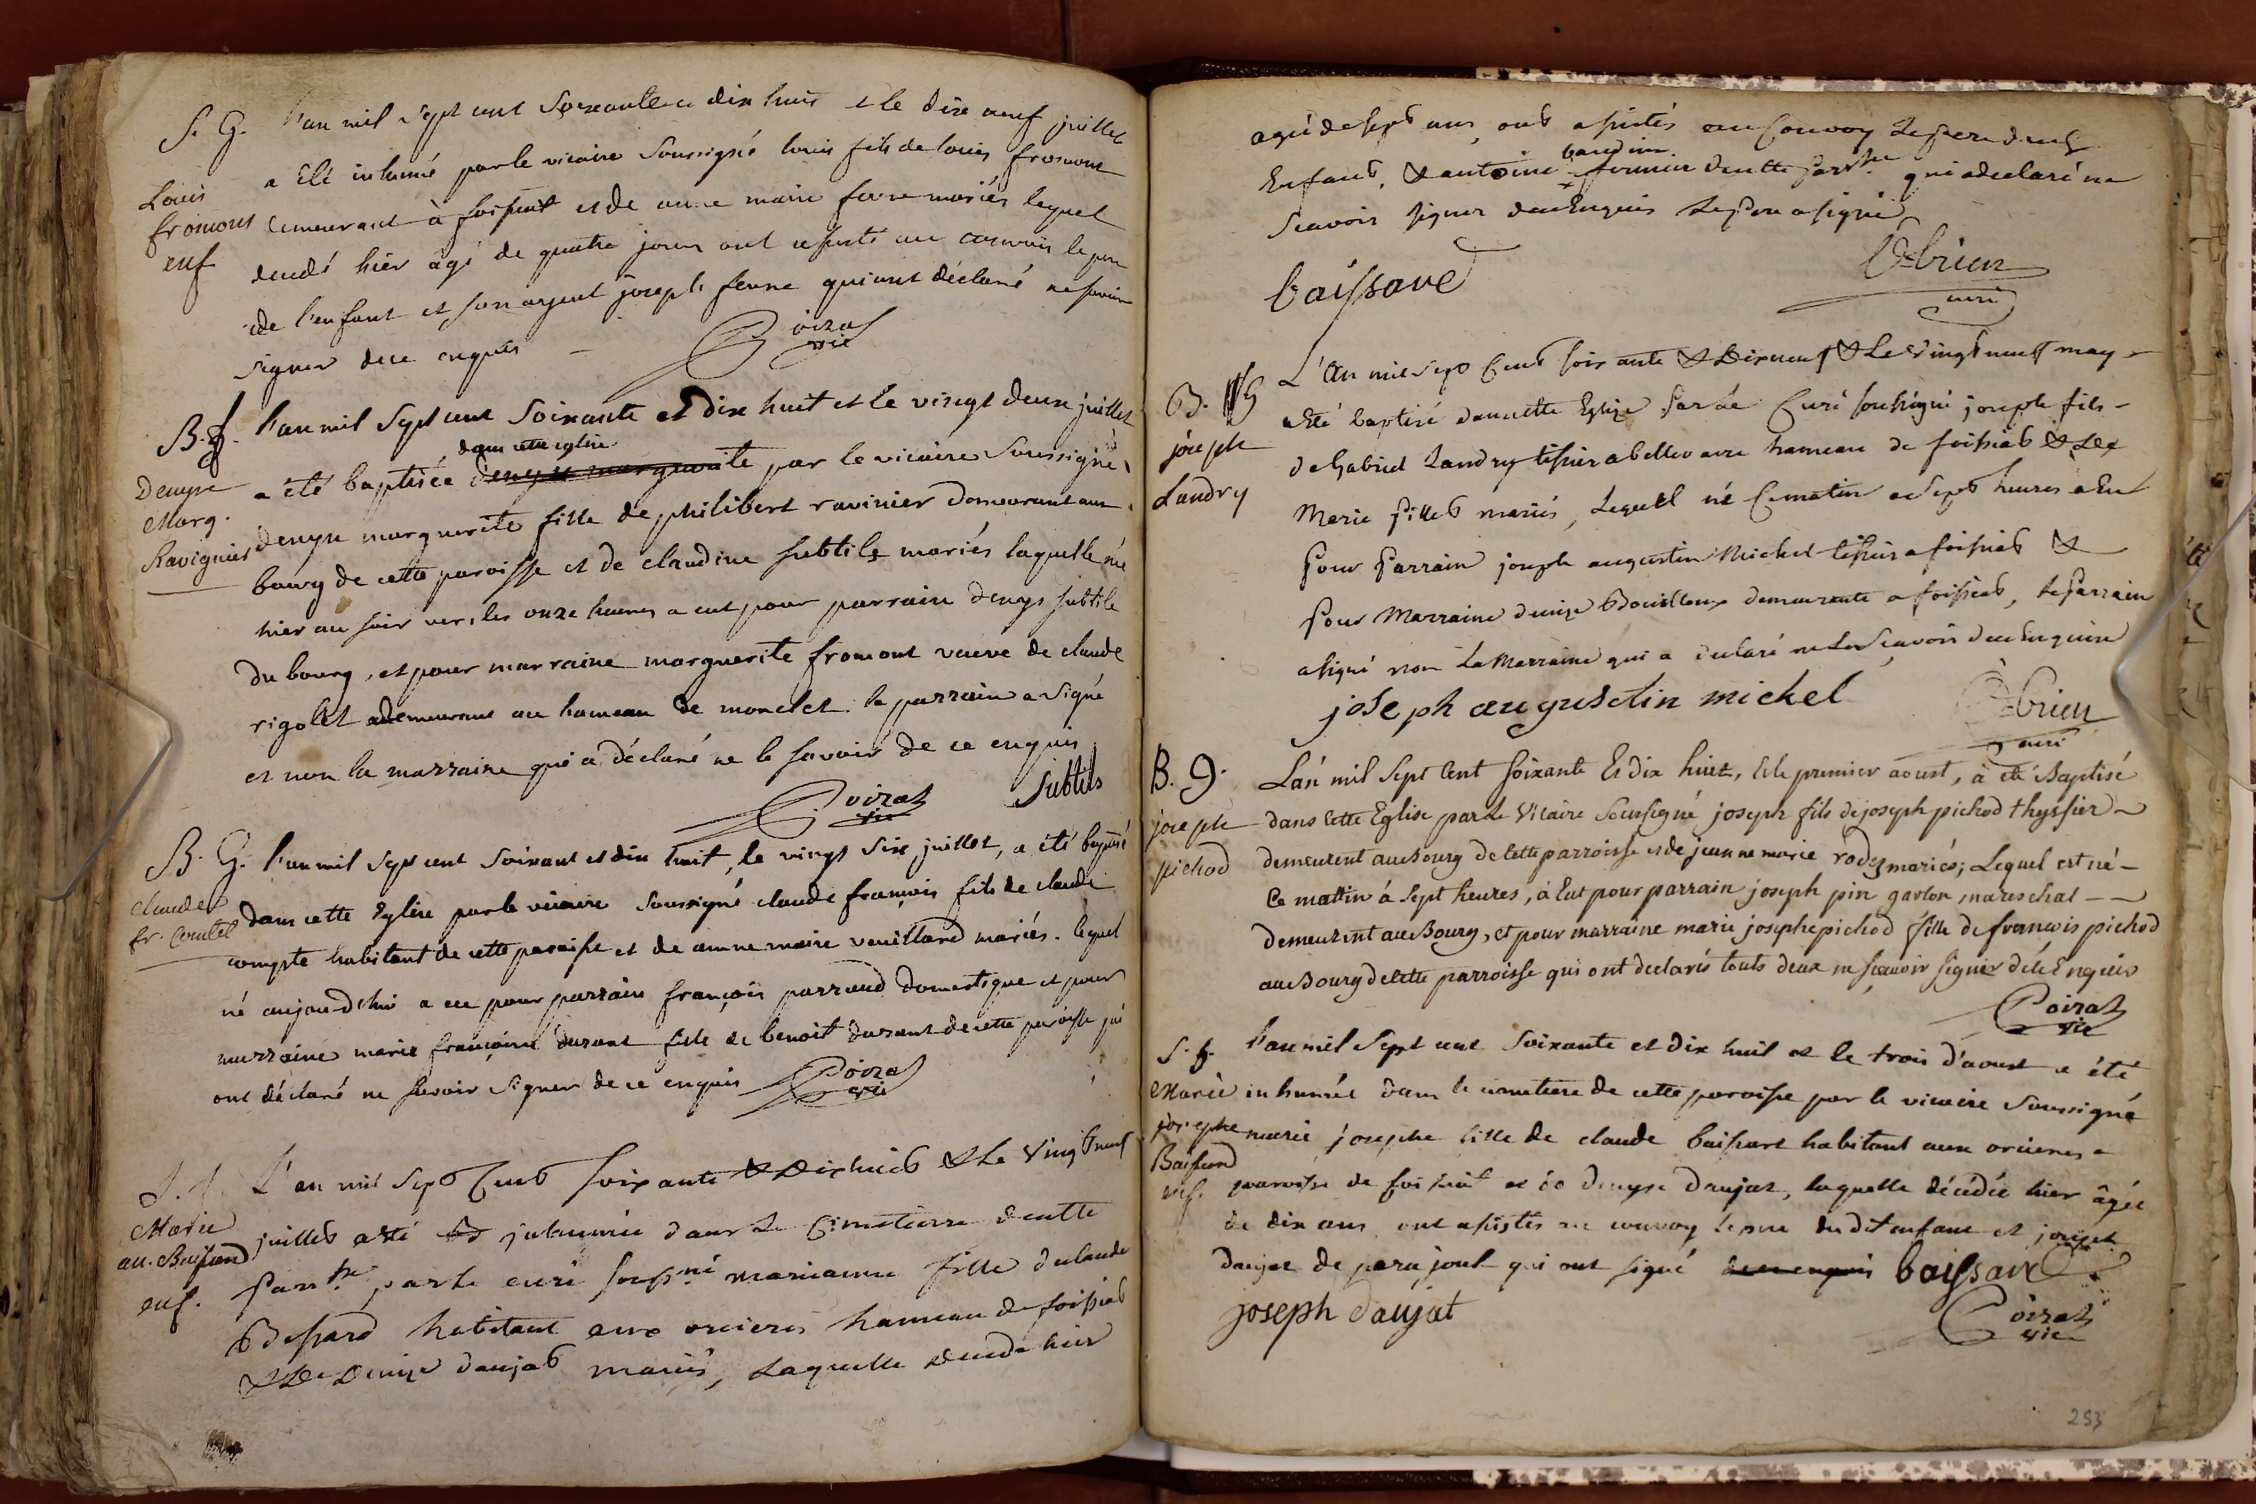 S. G. l'an mil sept cent soixante et dix huit et le dix neuf juillet
Louis
fromont
enf
a été inhumé par le vicaire soussigné louis fils de louis fromont
demeurant à foissiat et de anne marie mariés lequel
decedé hier agé de quatre jours ont assisté au convois le pere
de l'enfant et son joseph qui ont déclaré ne savoir
signer de ce enquis
Poizat
vic
B. G. l'an mil sept cent soixante et dix huit et le vingt deux juillet
Denyse
Marg.
Ravignier
dans cette eglise
a été baptisée denyse marguerite par le vicaire soussigné
denyse marguerite fille de philibert ravinier demeurant au
bourg de cette paroisse et de claudine subtils mariés laquelle née
hier au soir vers les onze heures a eut pour parrain denys subtile
du bourg, et pour marraine marguerite fromont veuve de claude
rigolet demeurant au hameau de monclet. le parrain a signé
et non la marraine qui a déclaré ne le savoir de ce enquis
Poizat
vic
Subtils
B. G. l'an mil sept cent soixant et dix huit, le vingt six juillet, a été baptisé
claude
fr. Comtet
dans cette Eglise par le vicaire soussigné claude françois fils de claude
compte habitant de cette paroisse et de anne marie vuillard mariés. lequel
né aujourd'hui a eu pour parrain françois parraud domestique et pour
marraine marie françoise durant fille de benoit durant de cette paroisse qui
ont déclaré ne savoir signer de ce enquis
Poizat
vic
L'an mil sept Cent soixante & Dix huict & Le vingt neuf
Marie
an. Baissard
enf.
juillet a Eté inhumée dans Le Cimetierre de cette
par.sse par le curé souss.né marianne fille de claude
Bessard habitant aux orcieres hameau de foissiat
& De Denise daujat mariés, Laquelle decedée hier
agée de sept ans, ont assistés au Convoy Le pere de cet
baudin
Enfant, & antoine fermier de cette par.sse qui a declaré ne
scavoir signer de ce Enquis Le pere a signé
baissard
Obrien
curé
L'an mil sept Cent soixante & Dix neuf & Le vingt neuf may
B. G
joseph
Landry
a Eté baptisé dans cette Eglise par le Curé soussigné joseph fils
de Gabriel Landry tissier a bellevavre hameau de foissiat & De
Marie pillet mariés, Lequel né Ce matin a sept heures a Eu
pour parrain joseph augustin Michel tissier a foissiat &
pour Marraine denise Bouilloux demeurante a foissiat, Le parrain
a signé non La Marraine qui a declaré ne Le scavoir de ce Enquise
joseph augusctin michel
Obrien
curé
B. G. Lan mil sept Cent soixante Et dix huit, Et le premier aoust, à été Baptisé
joseph
pichod
dans Cette Eglise par Le Vicaire Soussigné joseph fils de joseph pichod thyssier
demeurent au Bourg de Cette parroisse et de jeanne marie rody mariés; Lequel est né
Ce mattin à sept heures, à Eut pour parrain joseph pin garlon, mareschal
demeurent au Bourg, et pour marraine marie josephe pichod fille de françois pichod
au Bourg de Cette parroisse qui ont declarés touts deux ne scavoir signer de Ce Enquis
Poizat
vic
l'an mil sept cent soixante et dix huit et le trois d'aoust a été
Marie
josephe
Baissard
enf.
inhumée dans le cimetiere de cette paroisse par le vicaire soussigné
marie josephe fille de claude baissard habitant aux orcieres
paroisse de foissiat et de denyse daujat, laquelle décédée hier âgée
de dix ans ont assistés au convoy le pere du dit enfant et joseph
daujat de qui ont signé de ce enquis baissard
joseph daujat
Poizat
vic
253